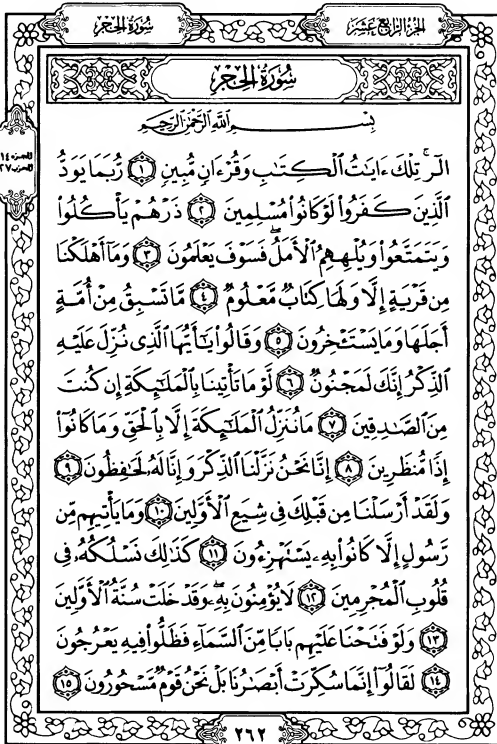 الجزء الرابع عشر
سورة الحجر
سُورَةُ الحِجْرِ
بِسْمِ اللَّهِ الرَّحْمَٰنِ الرَّحِيمِ
الجزء ١٤
الحزب ٢٧
الٓرۚ تِلْكَ ءَايَٰتُ ٱلْكِتَٰبِ وَقُرْءَانٍ مُّبِينٍ ١ رُّبَمَا يَوَدُّ
ٱلَّذِينَ كَفَرُواْ لَوْ كَانُواْ مُسْلِمِينَ ٢ ذَرْهُمْ يَأْكُلُواْ
وَيَتَمَتَّعُواْ وَيُلْهِهِمُ ٱلْأَمَلُۖ فَسَوْفَ يَعْلَمُونَ ٣ وَمَآ أَهْلَكْنَا
مِن قَرْيَةٍ إِلَّا وَلَهَا كِتَابٌ مَّعْلُومٌ ٤ مَّا تَسْبِقُ مِنْ أُمَّةٍ
أَجَلَهَا وَمَا يَسْتَـْٔخِرُونَ ٥ وَقَالُواْ يَٰٓأَيُّهَا ٱلَّذِى نُزِّلَ عَلَيْهِ
ٱلذِّكْرُ إِنَّكَ لَمَجْنُونٌ ٦ لَّوْ مَا تَأْتِينَا بِٱلْمَلَٰٓئِكَةِ إِن كُنتَ
مِنَ ٱلصَّٰدِقِينَ ٧ مَا نُنَزِّلُ ٱلْمَلَٰٓئِكَةَ إِلَّا بِٱلْحَقِّ وَمَا كَانُوٓاْ
إِذًا مُّنظَرِينَ ٨ إِنَّا نَحْنُ نَزَّلْنَا ٱلذِّكْرَ وَإِنَّا لَهُۥ لَحَٰفِظُونَ ٩
وَلَقَدْ أَرْسَلْنَا مِن قَبْلِكَ فِى شِيَعِ ٱلْأَوَّلِينَ ١٠ وَمَا يَأْتِيهِم مِّن
رَّسُولٍ إِلَّا كَانُواْ بِهِۦ يَسْتَهْزِءُونَ ١١ كَذَٰلِكَ نَسْلُكُهُۥ فِى
قُلُوبِ ٱلْمُجْرِمِينَ ١٢ لَا يُؤْمِنُونَ بِهِۦۖ وَقَدْ خَلَتْ سُنَّةُ ٱلْأَوَّلِينَ
١٣ وَلَوْ فَتَحْنَا عَلَيْهِم بَابًا مِّنَ ٱلسَّمَآءِ فَظَلُّواْ فِيهِ يَعْرُجُونَ
١٤ لَقَالُوٓاْ إِنَّمَا سُكِّرَتْ أَبْصَٰرُنَا بَلْ نَحْنُ قَوْمٌ مَّسْحُورُونَ ١٥
٢٦٢